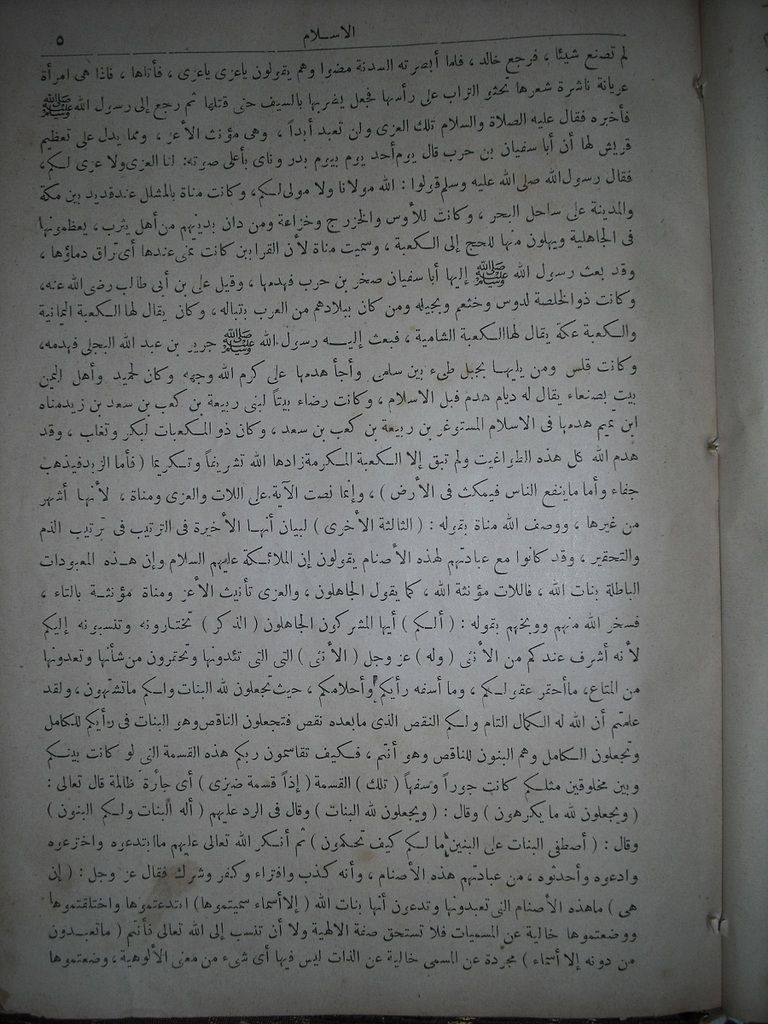 الاسلام ٥
لم تصنع شيئا ، فرجع خالد ، فلما أبصرته السدنة مضوا وهم يقولون ياعزى ياعزى ، فأتاها ، فاذا هى امرأة
عريانة ناشرة شعرها تحثو التراب على رأسها فجعل يضربها بالسيف حتى قتلها ثم رجع إلى رسول الله ﷺ
فأخبره فقال عليه الصلاة والسلام تلك العزى ولن تعبد أبداً ، وهى مؤنث الأعز ، ومما يدل على تعظيم
قريش لها أن أبا سفيان بن حرب قال يوم أحد يوم بيوم بدر ونادى بأعلى صوته : لنا العزى ولا عزى لكم ،
فقال رسول الله صلى الله عليه وسلم قولوا : الله مولانا ولا مولى لكم ، وكانت مناة بالمشلل عند قديد بين مكة
والمدينة على ساحل البحر ، وكانت للأوس والخزرج وخزاعة ومن دان بدينهم من أهل يثرب ، يعظمونها
فى الجاهلية ويهلون منها للحج إلى الكعبة ، وسميت مناة لأن القرابين كانت تمنى عندها أى تراق دماؤها ،
وقد بعث رسول الله ﷺ إليها أبا سفيان صخر بن حرب فهدمها ، وقيل على بن أبى طالب رضى الله عنه ،
وكانت ذو الخلصة لدوس وخثعم وبجيله ومن كان ببلادهم من العرب بتباله ، وكان يقال لها الكعبة اليمانية
والكعبة بمكة يقال لها الكعبة الشامية ، فبعث إليه رسول الله ﷺ جرير بن عبد الله البجلى فهدمه ،
وكانت قلس ومن يليها بجبل طىء بين سلمى وأجأ هدمها على كرم الله وجهه وكان لحميد وأهل اليمن
بيت بصنعاء يقال له ديام هدم قبل الاسلام ، وكانت رضاء بيتاً لبنى ربيعة بن كعب بن سعد بن زيد مناه
ابن تميم هدمها فى الاسلام المستوغر بن ربيعة بن كعب بن سعد ، وكان ذو الكعبات لبكر وتغلب ، وقد
هدم الله كل هذه الطواغيت ولم تبق إلا الكعبة المكرمة زادها الله تشريفاً وتكريما ( فأما الزبد فيذهب
جفاء وأما ماينفع الناس فيمكث فى الأرض ) ، وإنما نصت الآية على اللات والعزى ومناة ، لأنها أشهر
من غيرها ، ووصف الله مناة بقوله : ( الثالثة الأخرى ) لبيان أنها الأخيرة فى الترتيب فى ترتيب الذم
والتحقير ، وقد كانوا مع عبادتهم لهذه الأصنام يقولون إن الملائكة عليهم السلام وإن هذه المعبودات
الباطلة بنات الله ، فاللات مؤنثة الله ، كما يقول الجاهلون ، والعزى تأنيث الأعز ومناة مؤنثة بالتاء ،
فسخر الله منهم ووبخهم بقوله : ( ألكم ) أيها المشركون الجاهلون ( الذكر ) تختارونه وتنسبونه إليكم
لأنه أشرف عندكم من الأنثى ( وله ) عز وجل ( الأنثى ) التى التى تئدونها وتحتقرون من شأنها وتعدونها
من المتاع ، ماأحقر عقولكم ، وما أسفه رأيكم وأحلامكم ، حيث تجعلون لله البنات ولكم ماتشتهون ، ولقد
علمتم أن الله له الكمال التام ولكم النقص الذى مابعده نقص فتجعلون الناقص وهو البنات فى رأيكم للكامل
وتجعلون الكامل وهم البنون للناقص وهو أنتم ، فكيف تقاسمون ربكم هذه القسمة التى لو كانت بينكم
وبين مخلوقين مثلكم كانت جوراً وسفهاً ( تلك ) القسمة ( إذاً قسمة ضيزى ) أى جائرة ظالمة قال تعالى :
( ويجعلون لله ما يكرهون ) وقال : ( ويجعلون لله البنات ) وقال فى الرد عليهم ( أله البنات ولكم البنون )
وقال : ( أصطفى البنات على البنين ما لكم كيف تحكمون ) ثم أنكر الله تعالى عليهم ماابتدعوه واخترعوه
وادعوه وأحدثوه ، من عبادتهم هذه الأصنام ، وأنه كذب وافتراء وكفر وشرك فقال عز وجل : ( إن
هى ) ماهذه الأصنام التى تعبدونها وتدعون أنها بنات الله ( إلا أسماء سميتموها ) ابتدعتموها واختلقتموها
ووضعتموها خالية عن المسميات فلا تستحق صفة الالهية ولا أن تنسب إلى الله تعالى فأنتم ( ماتعبدون
من دونه إلا أسماء ) مجردة عن المسمى خالية عن الذات ليس فيها أى شىء من معنى الألوهية ، وضعتموها